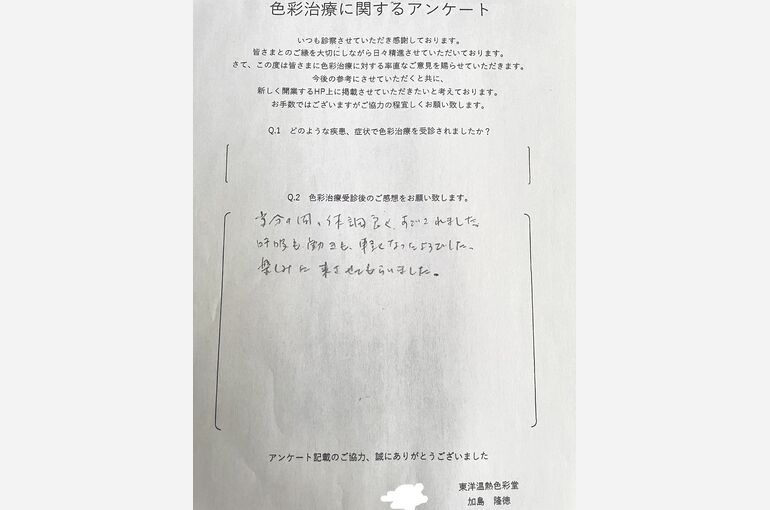 色彩治療に関するアンケート
いつも診察させていただき感謝しております。
皆さまとのご縁を大切にしながら日々精進させていただいております。
さて、この度は皆さまに色彩治療に対する率直なご意見を賜らせていただきます。
今後の参考にさせていただくと共に、
新しく開業するHP上に掲載させていただきたいと考えております。
お手数ではございますがご協力の程宜しくお願い致します。
Q.1 どのような疾患、症状で色彩治療を受診されましたか？
Q.2 色彩治療受診後のご感想をお願い致します。
当分の間、体調良く、すごされました。
呼吸も動きも、軽くなったようでした、
楽しみに来させてもらいました。
アンケート記載のご協力、誠にありがとうございました
東洋温熱色彩堂
加島 隆徳